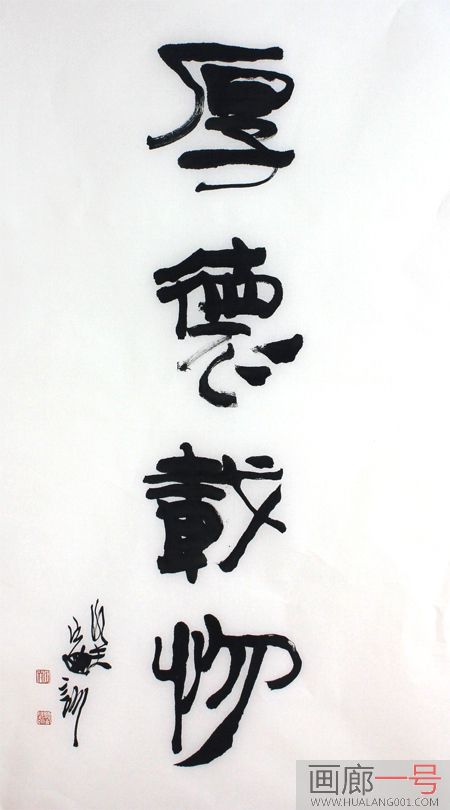 厚德载物
画廊一号
WWW.HUALANG001.COM